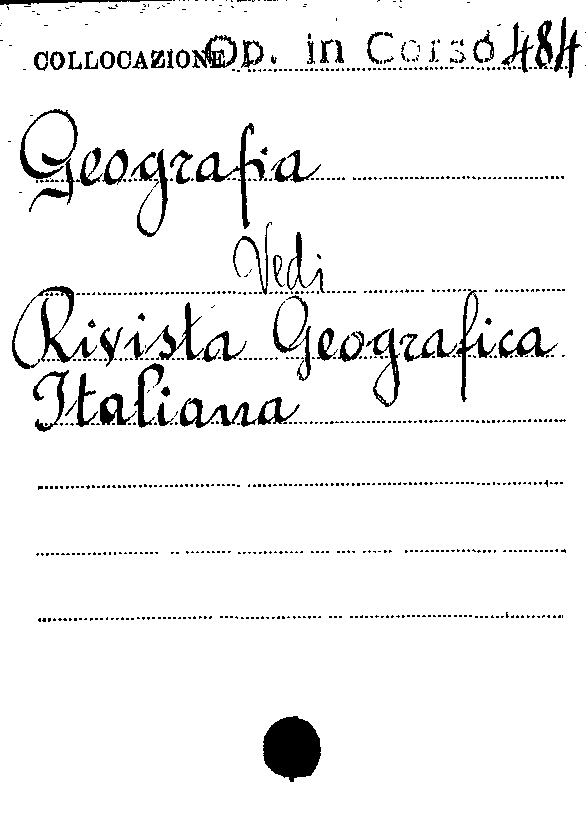 COLLOCAZIONE Op. in Corso 484
Geografia
Vedi
Rivista Geografica
Italiana